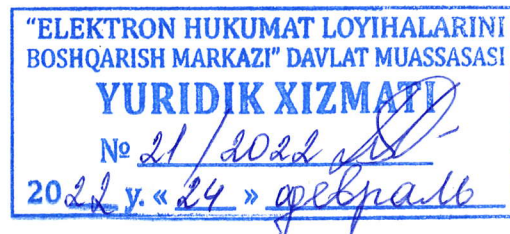 "ELEKTRON HUKUMAT LOYIHALARINI
BOSHQARISH MARKAZI" DAVLAT MUASSASASI
YURIDIK XIZMATI
№ 21/2022
2022 y. « 24 » февраль